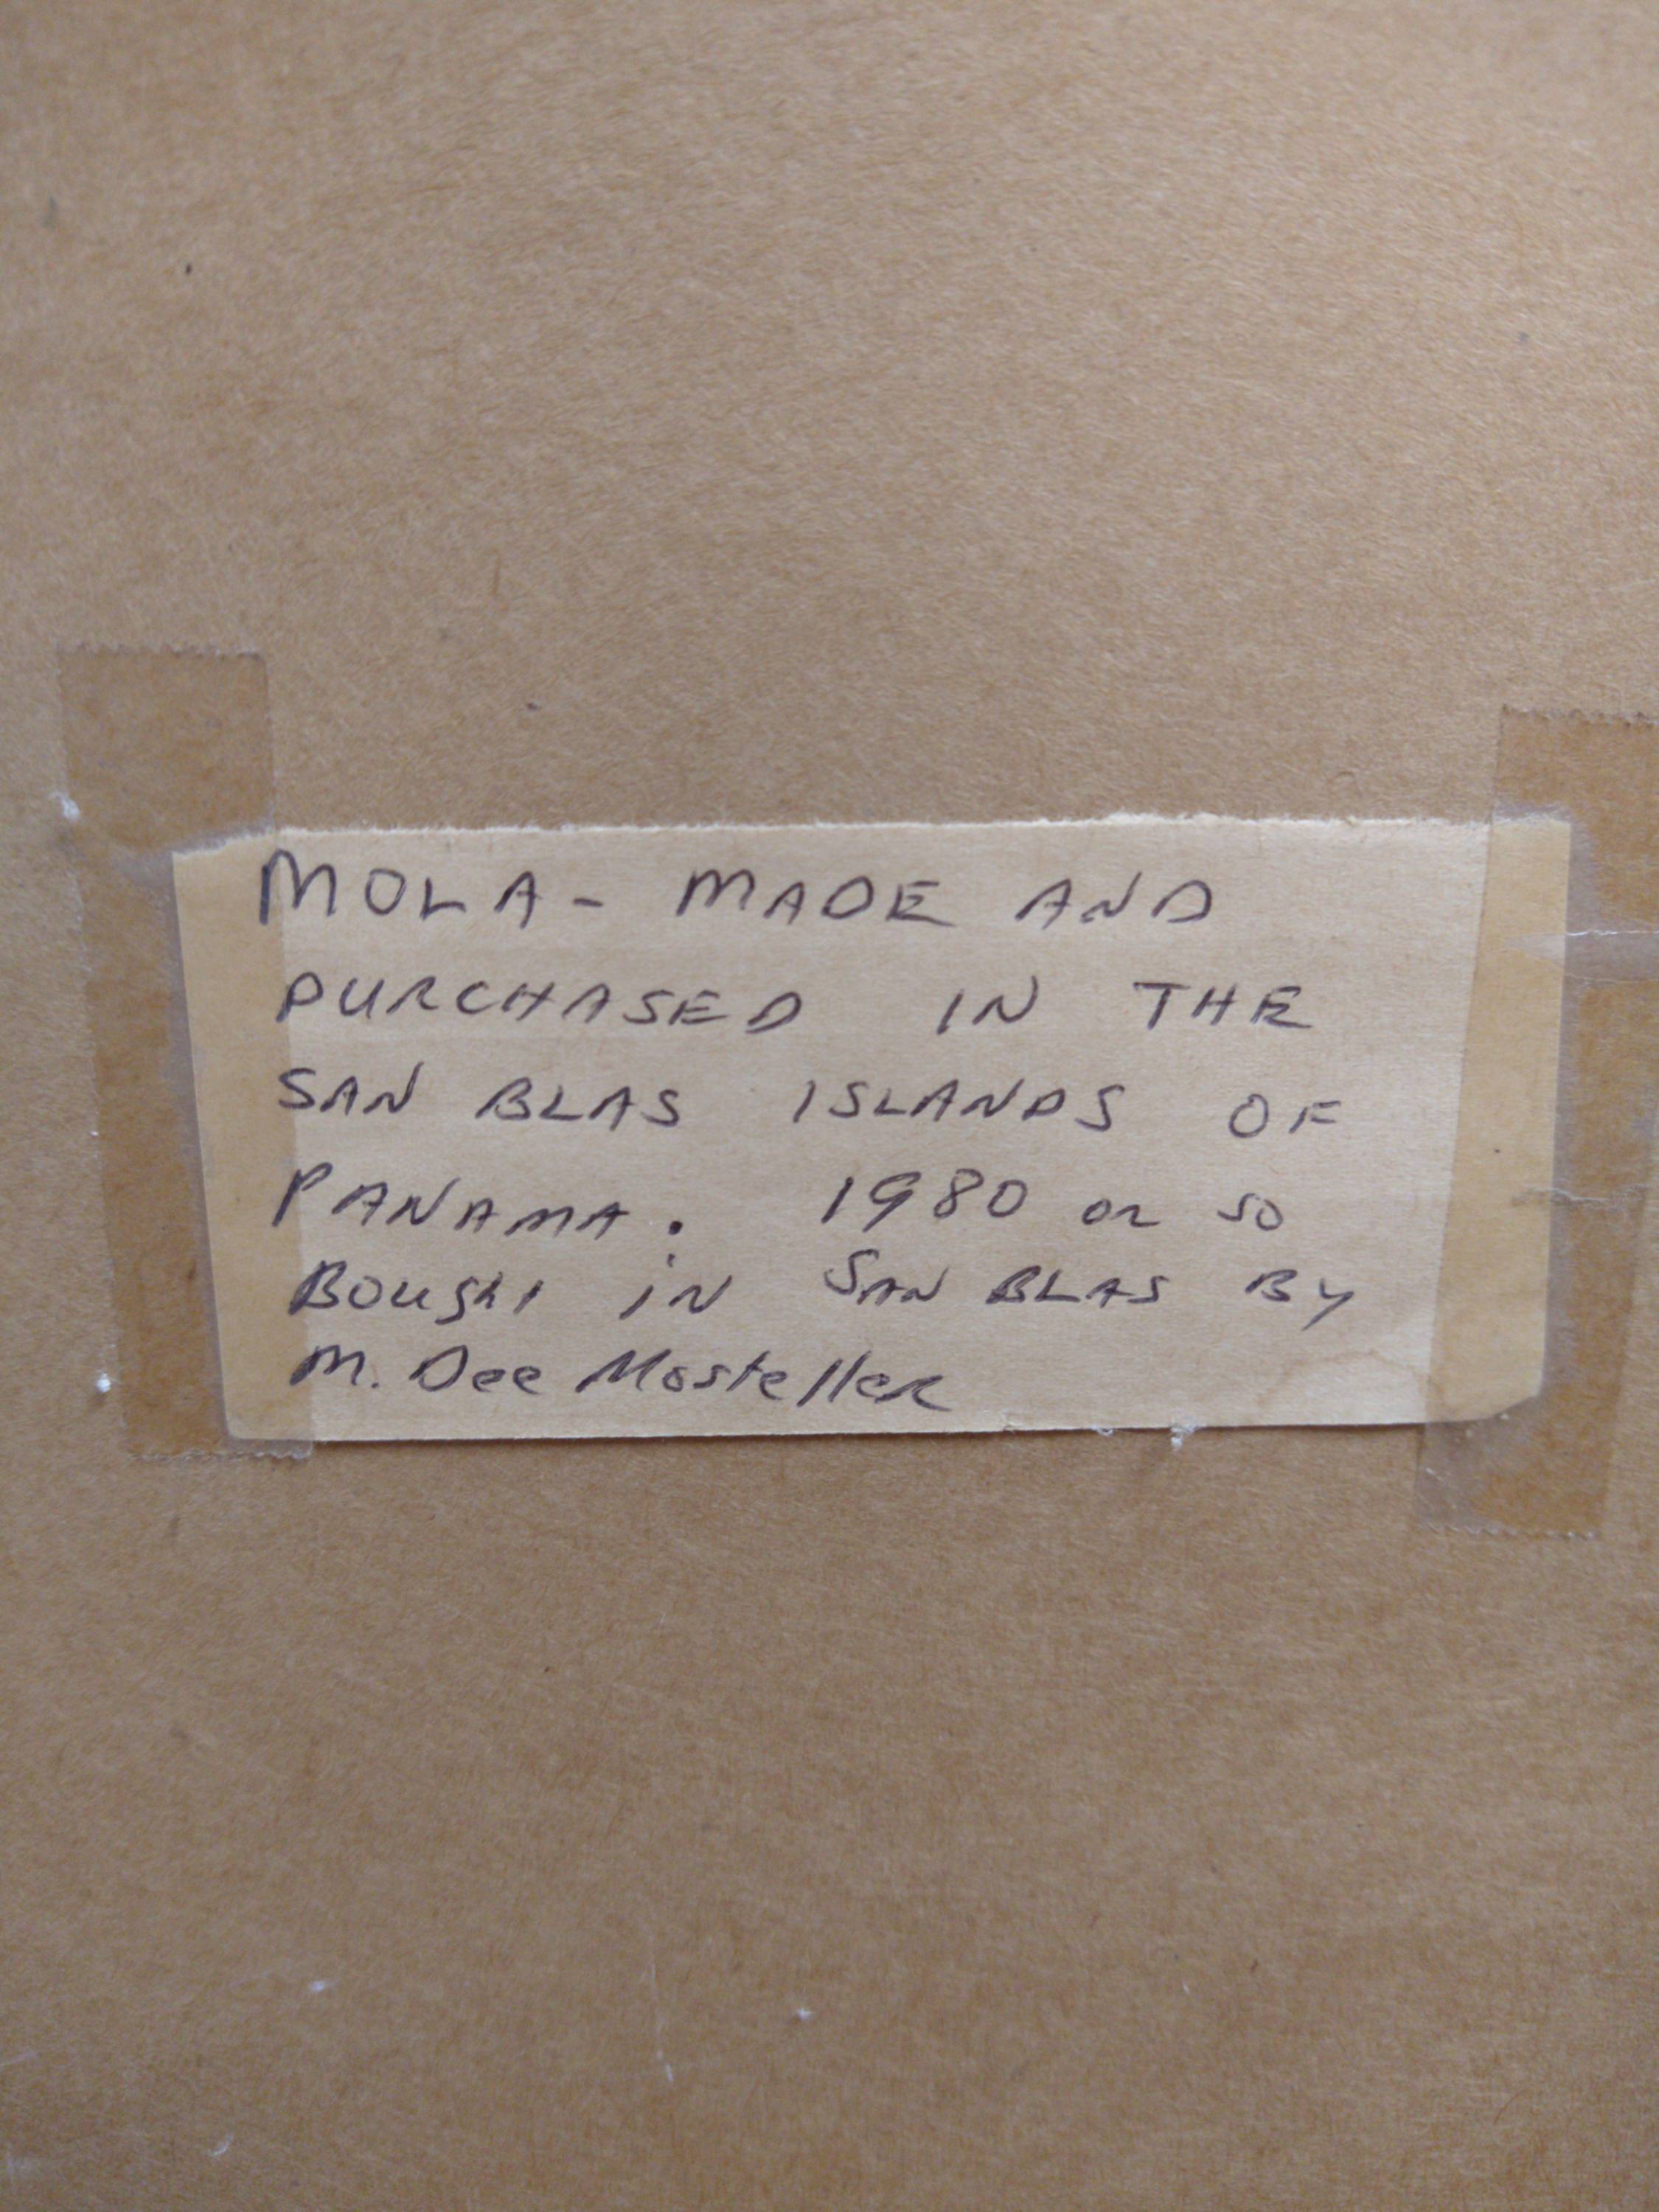 MOLA - MADE AND
PURCHASED IN THE
SAN BLAS ISLANDS OF
PANAMA. 1980 or so
Bought in SAN BLAS By
M. Dee Mosteller